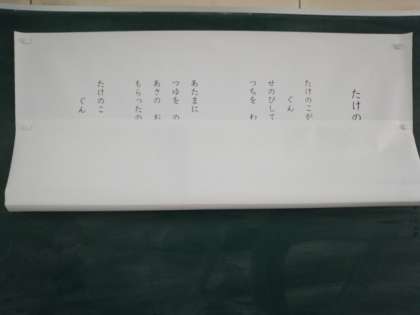 たけの
たけのこが
ぐん
せのびして
つちを わ
あたまに
つゆを の
あさの お
もらったの
たけのこ
ぐん